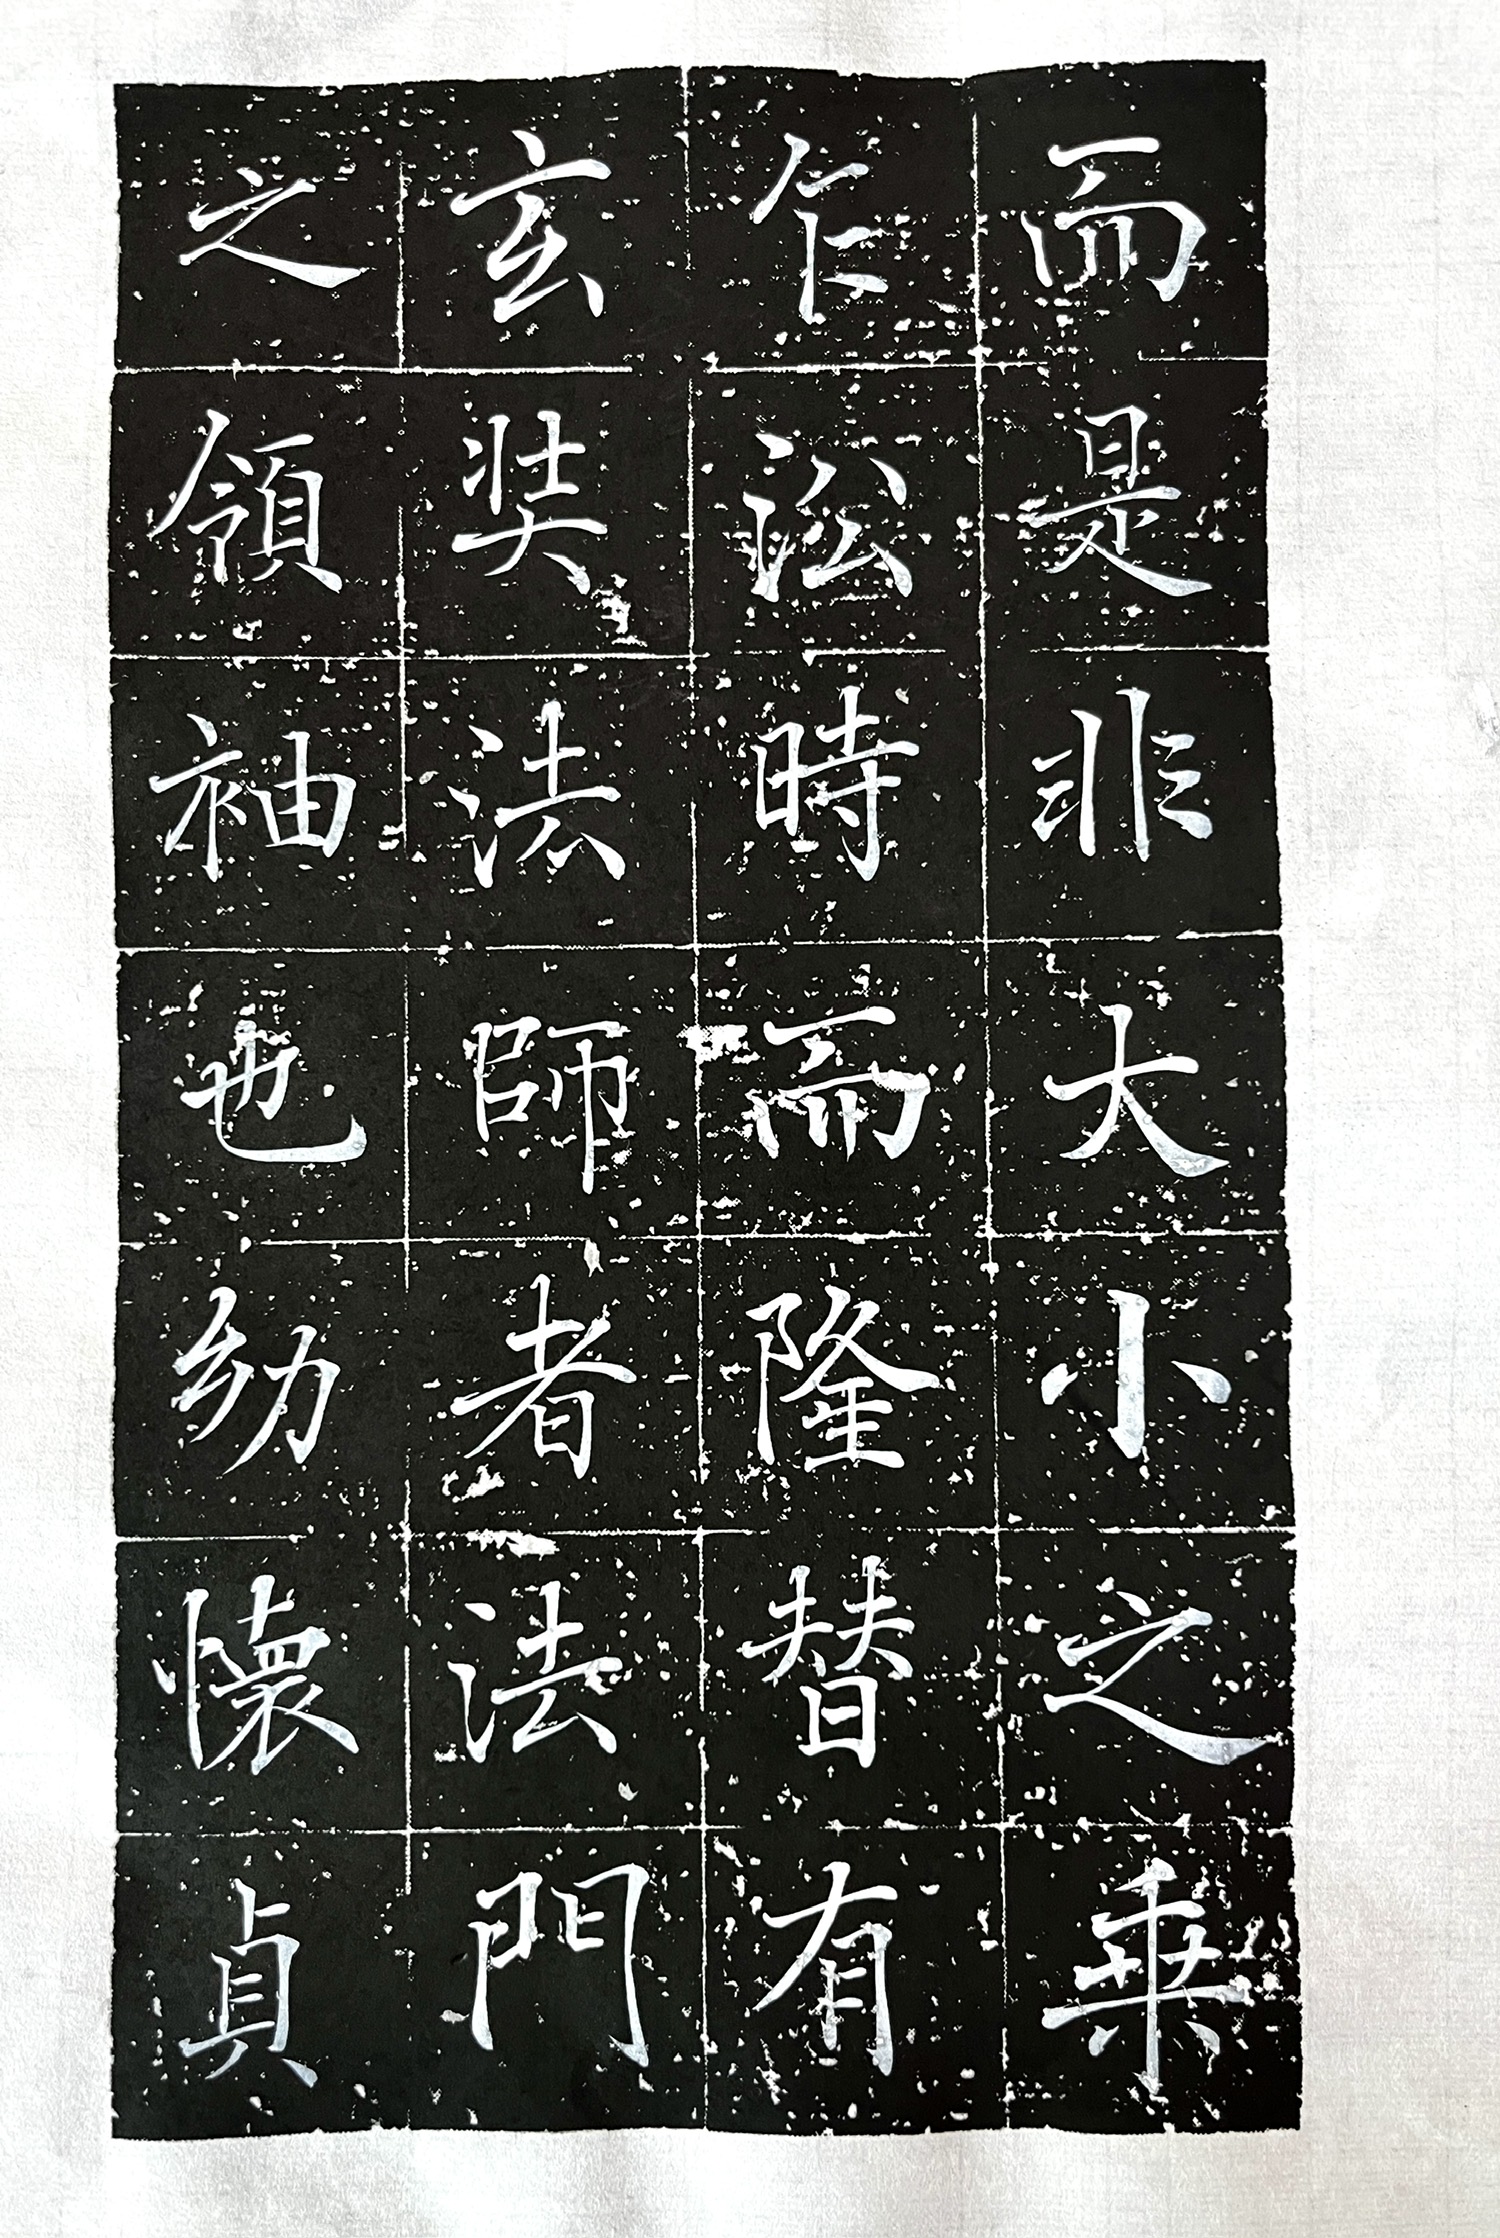 而是非大小之乗
乍沿時而隆替有
玄奘法師者法門
之領袖也幼懐貞